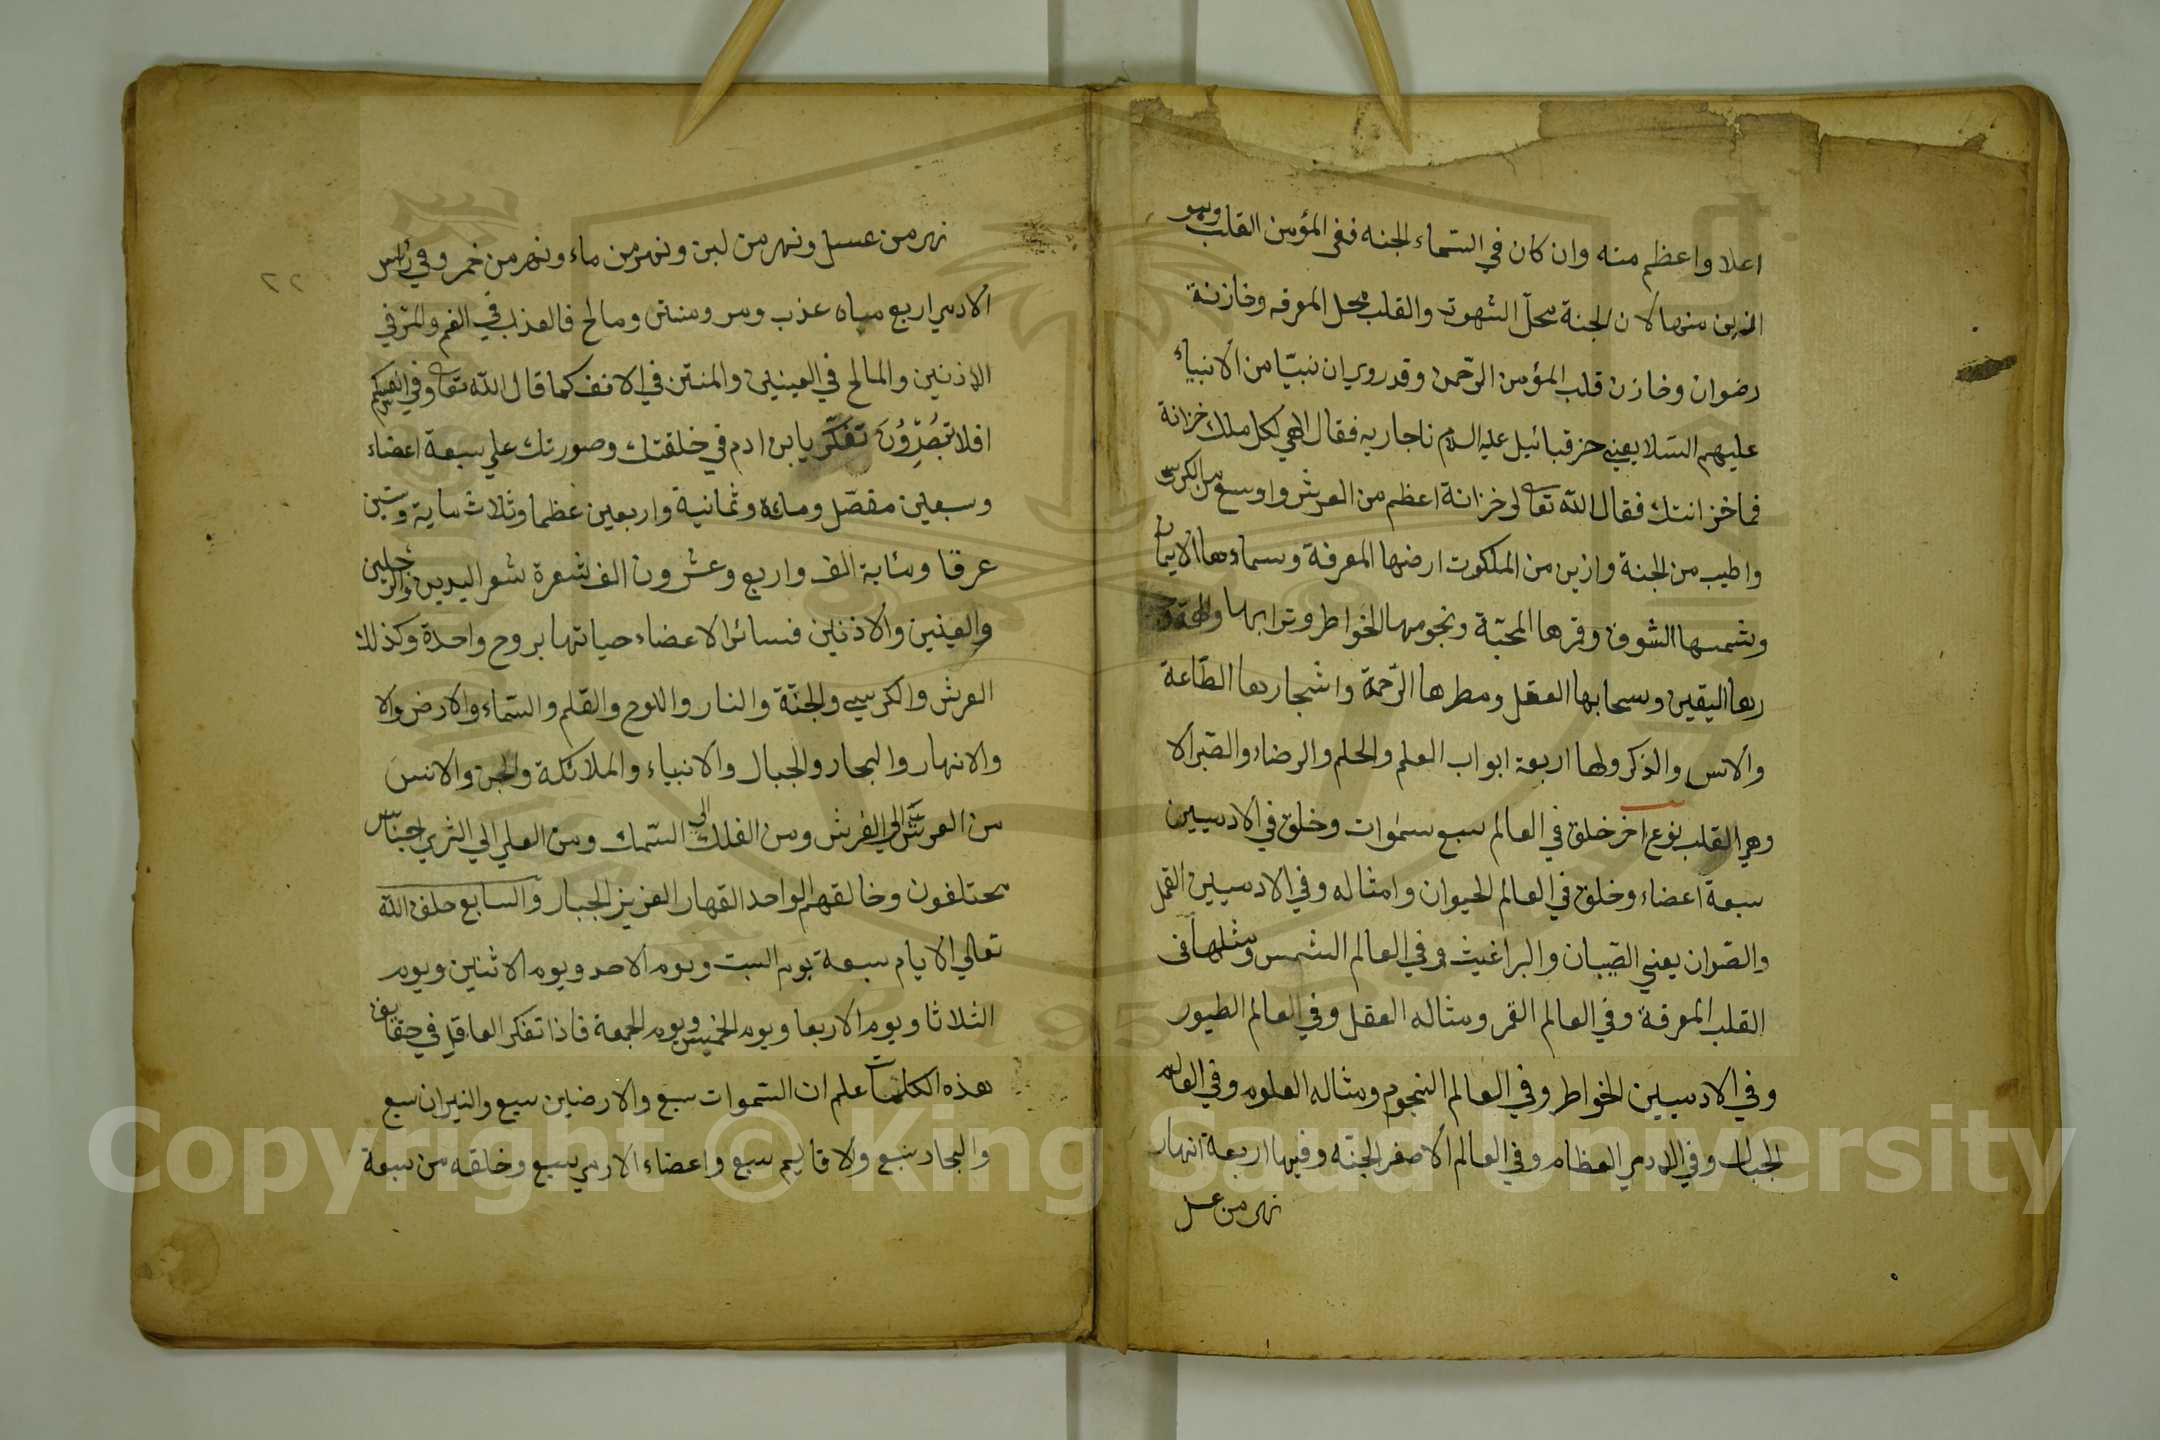 اعلا واعظم منه وان كان في السماء الجنه ففي المؤمن القلب وهو
ازين منها لان الجنة محلّ الشهوت والقلب محل المعرفه وخازنة
رضوان وخازن قلب المؤمن الرّحمن وقدروي ان نبيّا من الانبياء
عليهم السلا يعني حزقبائيل عليه السلام ناجا ربه فقال الهي لكل ملك خزانة
فما خزانتك فقال الله تعالى خزانة اعظم من العرش واوسع من الكرسي
واطيب من الجنة وازين من الملكوت ارضها المعرفة وسماءها الايمان
وشمسها الشوق وقمرها المحبّة ونجومها الخواطر وترابها
رها اليقين وسحابها العقل ومطرها الرّحمة واشجارها الطّاعة
والانس والذكر ولها اربعة ابواب العلم والحلم والرضاء والصّبر الا
وهي القلب نوع اخر خلق في العالم سبع سموات وخلق في الادميين
سبعة اعضاء وخلق في العالم الحيوان وامثاله وفي الادميين القمل
والصّوان يعني الصّبان والبراغيث وفي العالم الشمس ومثلها في
القلب المعرفة وفي العالم القمر ومثاله العقل وفي العالم الطيور
وفي الادميين الخواطر وفي العالم النجوم ومثاله العلوم وفي العالم
الجبال وفي الادمي العظام وفي العالم الاصغر الجنّه وفيها اربعة انهار
نهر من عسل
٢٢
نهر من عسل ونهر من لبن ونهر من ماء ونهر من خمر وفي رأس
الادمي اربع مياه عذب ومر ومنتن ومالح فالعذب في الفم والمرّ في
الاذنين والمالح في العينين والمنتن في الانف كما قال الله تعا وفي انفسكم
افلا تبصرون تفكّر يا بن ادم في خلقتك وصورتك علي سبعة اعضاء
وسبعين مفصّل ومائة وثمانية واربعين عظما وثلاث ماية وستين
عرقا ومئاية الف واربع وعشرون الف شعرة شعر اليدين والرجلين
والعينين والاذنين فسائر الاعضاء حياتها بروح واحدة وكذلك
العرش والكرسي والجنّة والنار واللوح والقلم والسّماء والارض والا
والانهار والبحار والجبال والانبياء والملائكة والجن والانس
من العرش الي الفرش ومن الفلك الى السّمك ومن العلي الي الثري اجناس
مختلفون وخالقهم الواحد القهار العزيز الجبار والسابع خلق الله
تعالي الايام سبعة يوم السبت ويوم الاحد ويوم الاثنين ويوم
الثلاثا ويوم الاربعا ويوم الخميس ويوم الجمعة فاذا تفكر العاقل في حقايق
هذه الكلمات علم ان السّموات سبع والارضين سبع والنيران سبع
والبحار سبع والاقاليم سبع واعضاء الادمي سبع وخلقه من سبعة
Copyright © King Saud University